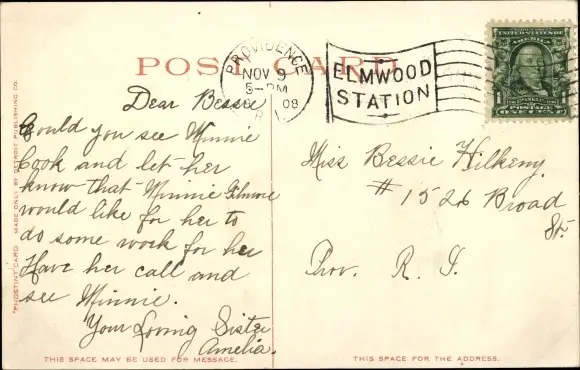 POST CARD
PROVIDENCE
NOV 9
5-PM
08
R.I.
ELMWOOD
STATION
UNITED STATES OF
AMERICA
FRANKLIN
POSTAGE
1 ONE CENT 1
Dear Bessie
Could you see Minnie
Cook and let her
know that Minnie Gilmore
would like for her to
do some work for her
Have her call and
see Minnie.
Your Loving Sister
Amelia.
Miss Bessie Hilkeny.
# 1526 Broad
St.
Prov. R. I.
"PHOSTINT" CARD MADE ONLY BY DETROIT PUBLISHING CO.
THIS SPACE MAY BE USED FOR MESSAGE.
THIS SPACE FOR THE ADDRESS.